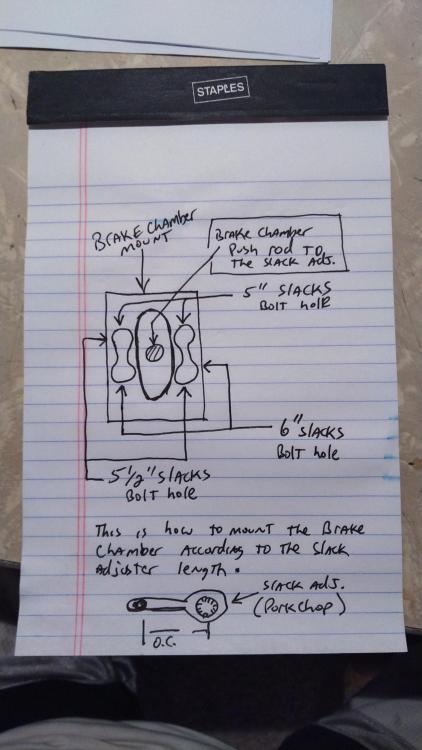 STAPLES
BRAKE CHAMBER
MOUNT
BRAKE CHAMBER
Push rod TO
The SLACK Adj.
5" SLACKS
Bolt hole
6" SLACKS
Bolt hole
5 1/2" SLACKS
Bolt hole
This is how to mount the Brake
Chamber According to the Slack
Adjuster length.
SLACK Adj.
(Porkchop)
O.C.